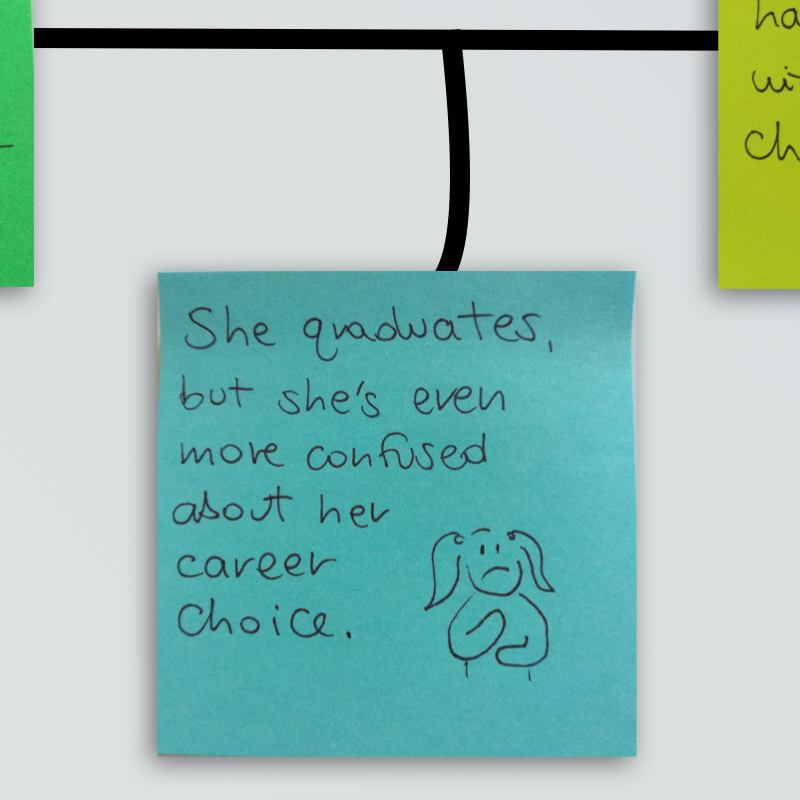 She graduates,
but she's even
more confused
about her
career
choice.